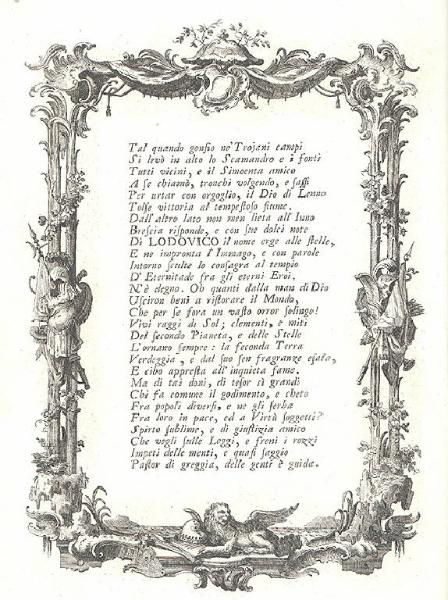 Tal quando gonfio ne' Trojani campi
Si levò in alto lo Scamandro e i fonti
Tutti vicini, e il Simoenta amico
A se chiamò, tronchi volgendo, e sassi
Per urtar con orgoglio, il Dio di Lenno
Tolse vittoria al tempestoso fiume.
Dall' altro lato non men lieta all' Inno
Brescia risponde, e con sue dolci note
Di LODOVICO il nome erge alle stelle,
E ne impronta l' Immago, e con parole
Intorno sculte lo consagra al tempio
D' Eternitade fra gli eterni Eroi.
N' è degno. Oh quanti dalla man di Dio
Usciron beni a ristorare il Mondo,
Che per se fora un vasto orror solingo!
Vivi raggi di Sol; clementi, e miti
Del secondo Pianeta, e delle Stelle
L' ornano sempre: la feconda Terra
Verdeggia, e dal suo sen fragranze esala,
E cibo appresta all' inquieta fame.
Ma di tai doni, di tesor sì grandi
Chi fa comune il godimento, e cheto
Fra popoli diversi, e ne gli serba
Fra loro in pace, ed a Virtù soggetti?
Spirto sublime, e di giustizia amico
Che vegli sulle Leggi, e freni i rozzi
Impeti delle menti, e quasi saggio
Pastor di greggia, delle genti è guida.